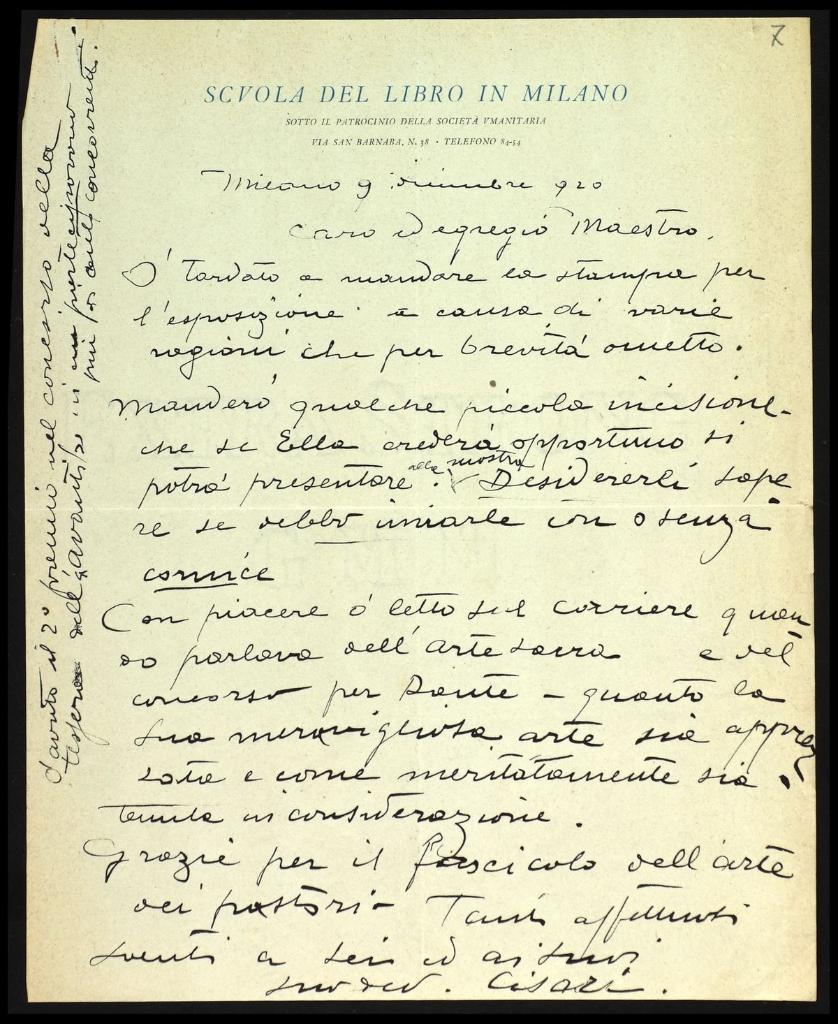 7
SCVOLA DEL LIBRO IN MILANO
SOTTO IL PATROCINIO DELLA SOCIETÀ VMANITARIA
VIA SAN BARNABA, N. 38 · TELEFONO 84-54
Milano 9 dicembre 920
Caro ed egregio Maestro,
Ò tardato a mandare la stampa per
l'esposizione a causa di varie
ragioni che per brevità ometto.
Manderò qualche piccola incisione
che se Ella crederà opportuno si
potrà presentare alla mostra. Desidererei sape
re se debbo inviarle con o senza
cornice
Con piacere ò letto sul corriere quan
do parlava dell'arte sacra e del
concorso per Dante – quanto la
sua meravigliosa arte sia apprez
zata e come meritatamente sia
tenuta in considerazione.
Grazie per il fascicolo dell'arte
dei pastori – Tanti affettuosi
saluti a Lei ed ai suoi
suo dev. Cisari.
ò avuto il 2° premio nel concorso della
tessera dell'avanti/20 in parteciparono
più di cento concorrenti.